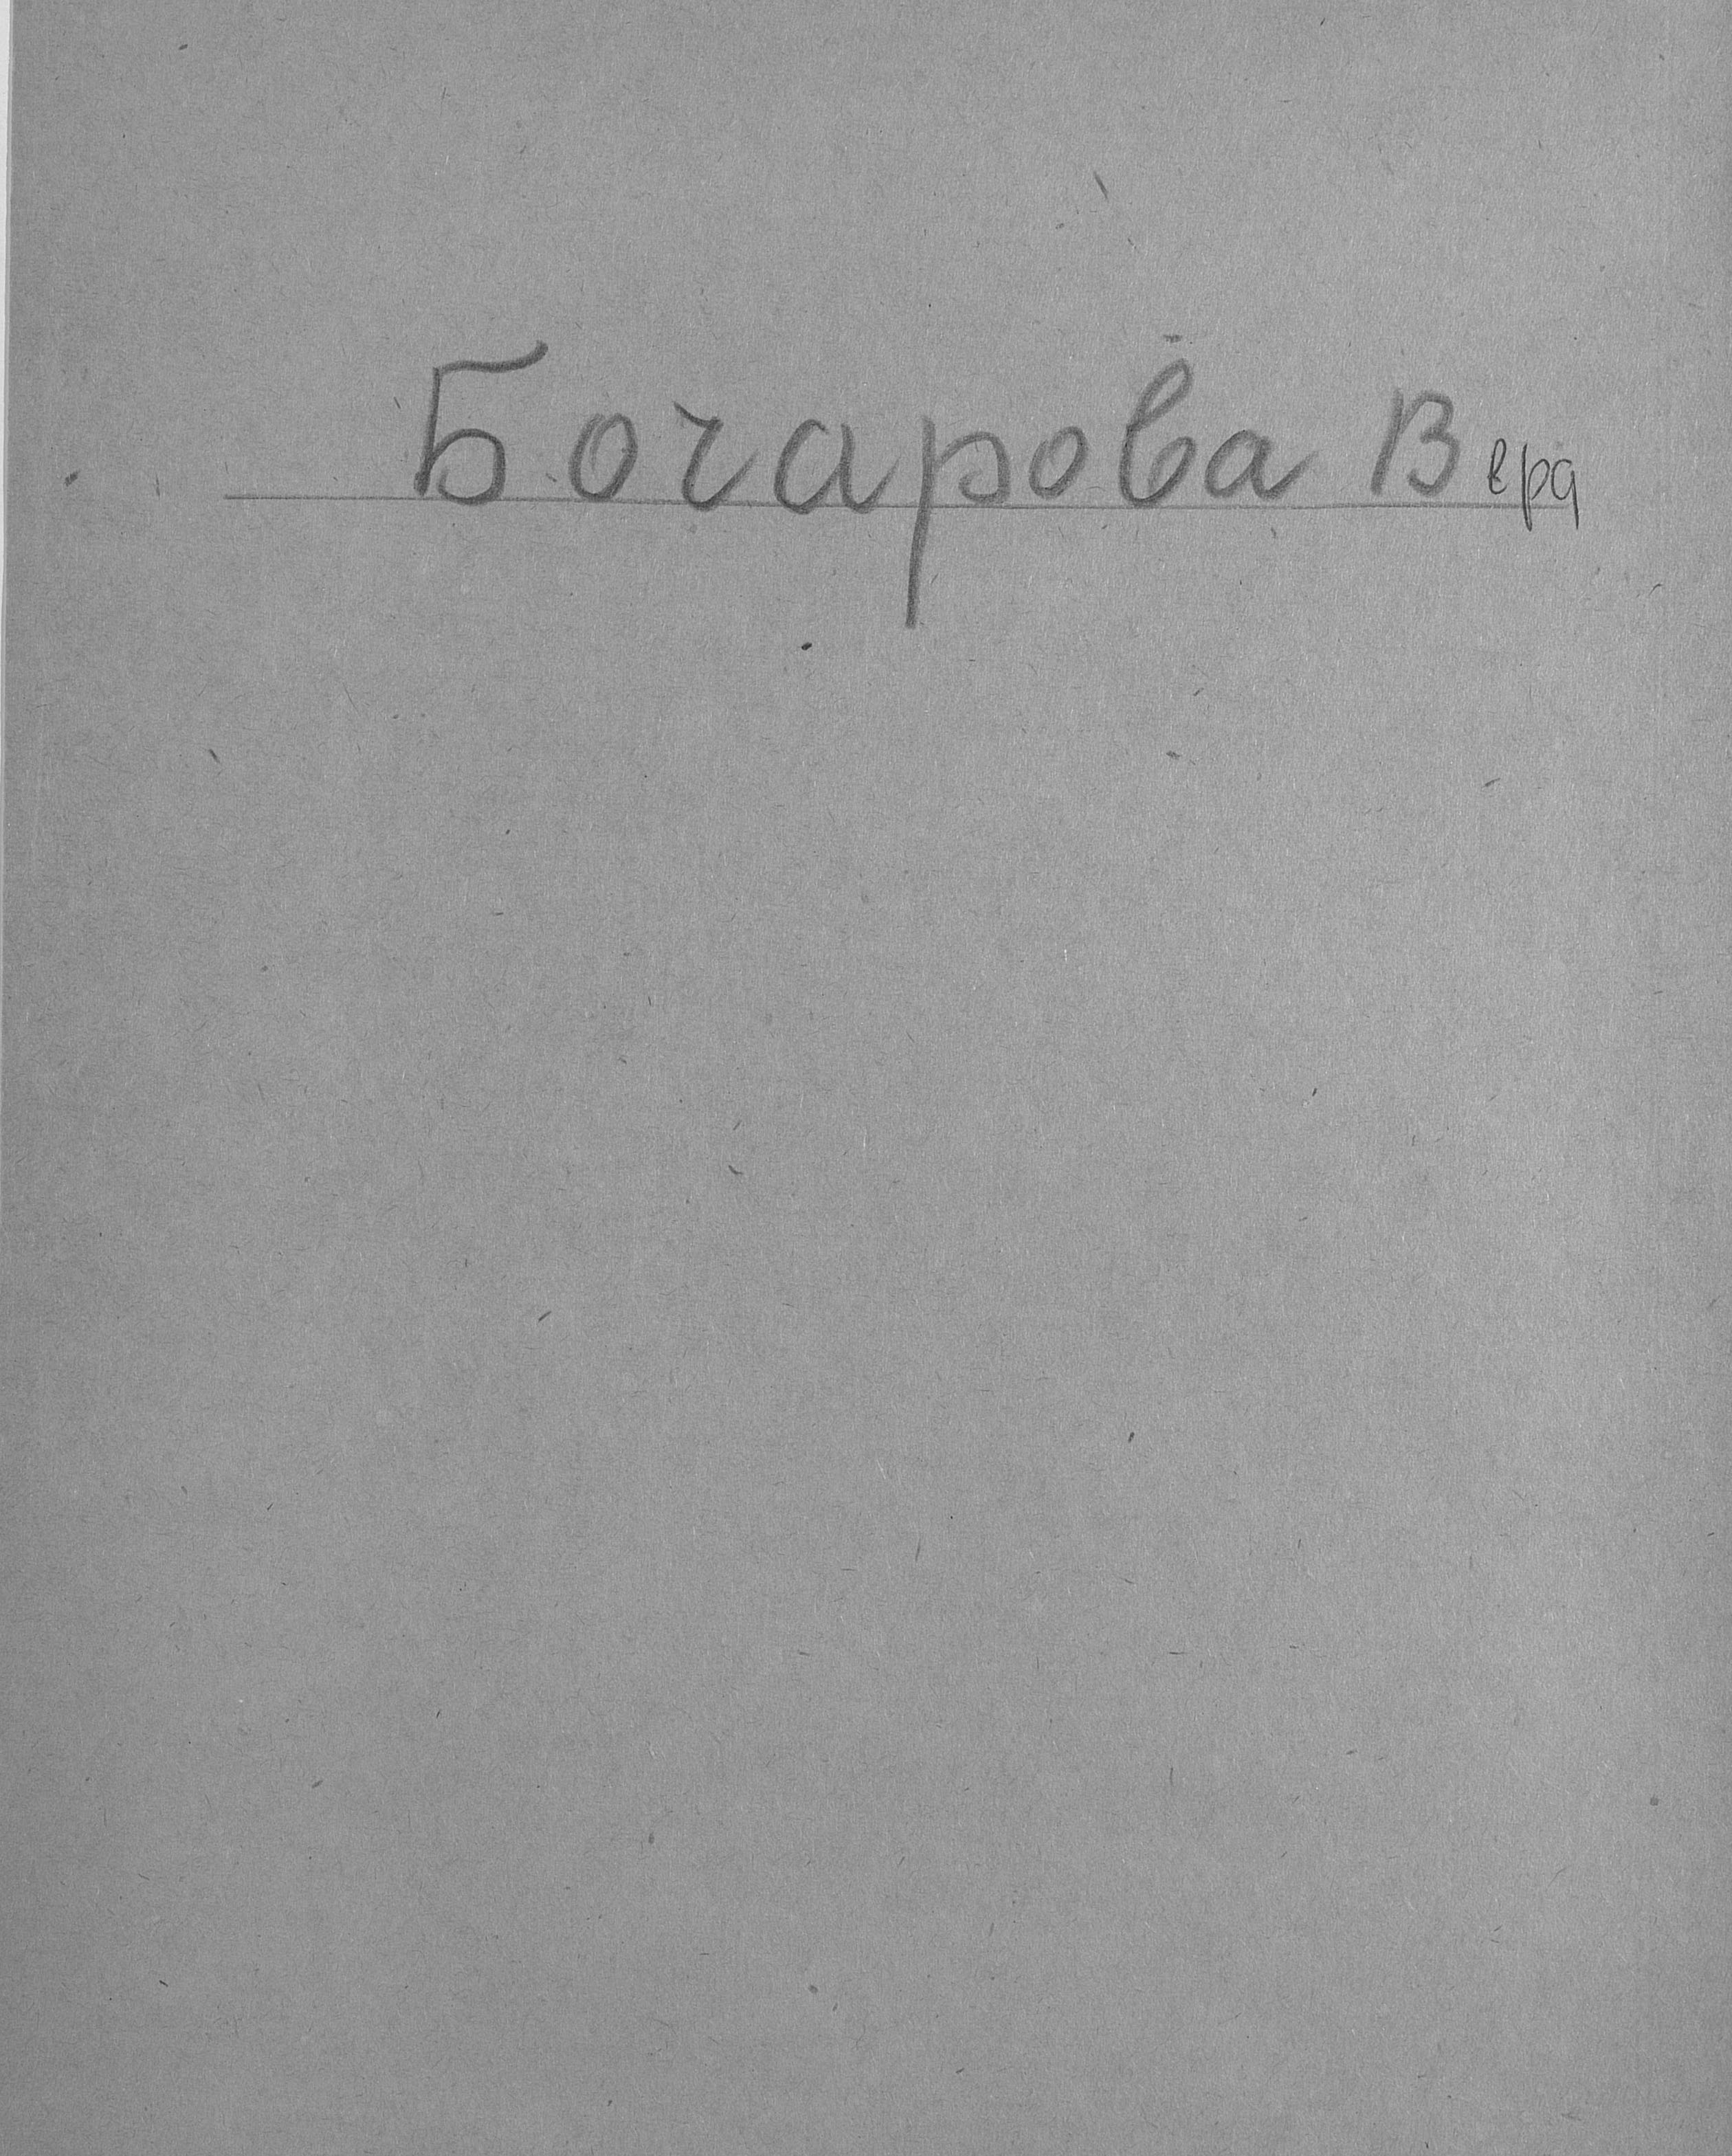 Бочарова Вера